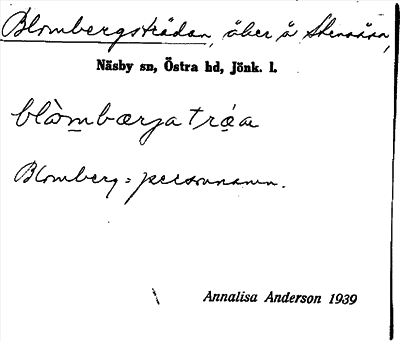 Blombergsträdan, åker å Stensåsa,
Näsby sn, Östra hd, Jönk. l.
blòmbærja tráa
Blomberg = personnamn.
Annalisa Anderson 1939